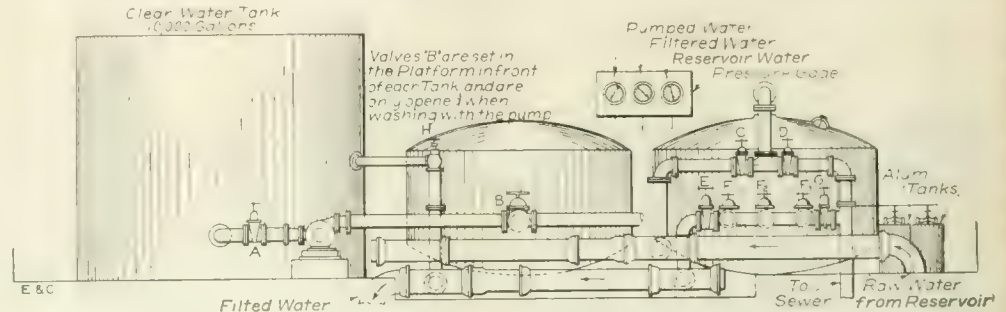 Clear Water Tank
10,000 Gallons
Valves "B" are set in
the Platform in front
of each Tank and are
only opened when
washing with the pump
Pumped Water
Filtered Water
Reservoir Water
Pressure Gage
H
C
D
E
F
F
F
G
B
A
Alum
Tanks
E & C
Filted Water
To
Sewer
Raw Water
from Reservoir